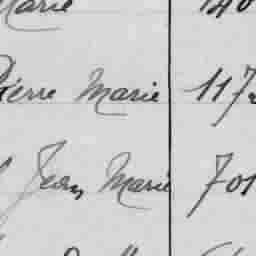 Marie 140
Pierre Marie 117
Jean Marie 701